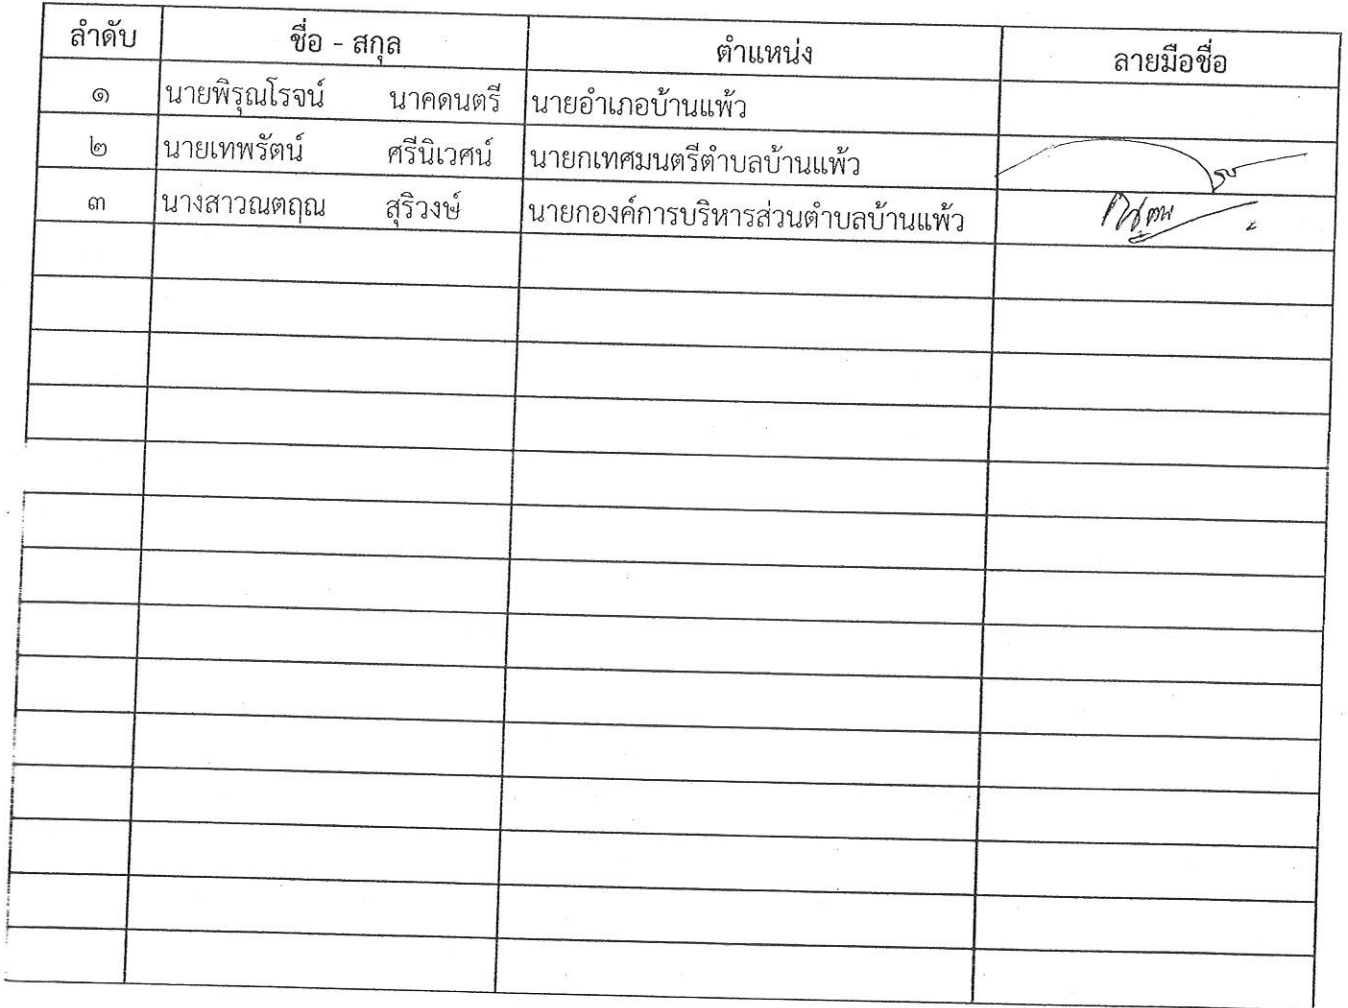 ลำดับ ชื่อ - สกุล ตำแหน่ง ลายมือชื่อ
๑ นายพิรุณโรจน์ นาคดนตรี นายอำเภอบ้านแพ้ว
๒ นายเทพรัตน์ ศรีนิเวศน์ นายกเทศมนตรีตำบลบ้านแพ้ว
๓ นางสาวณตฤณ สุริวงษ์ นายกองค์การบริหารส่วนตำบลบ้านแพ้ว